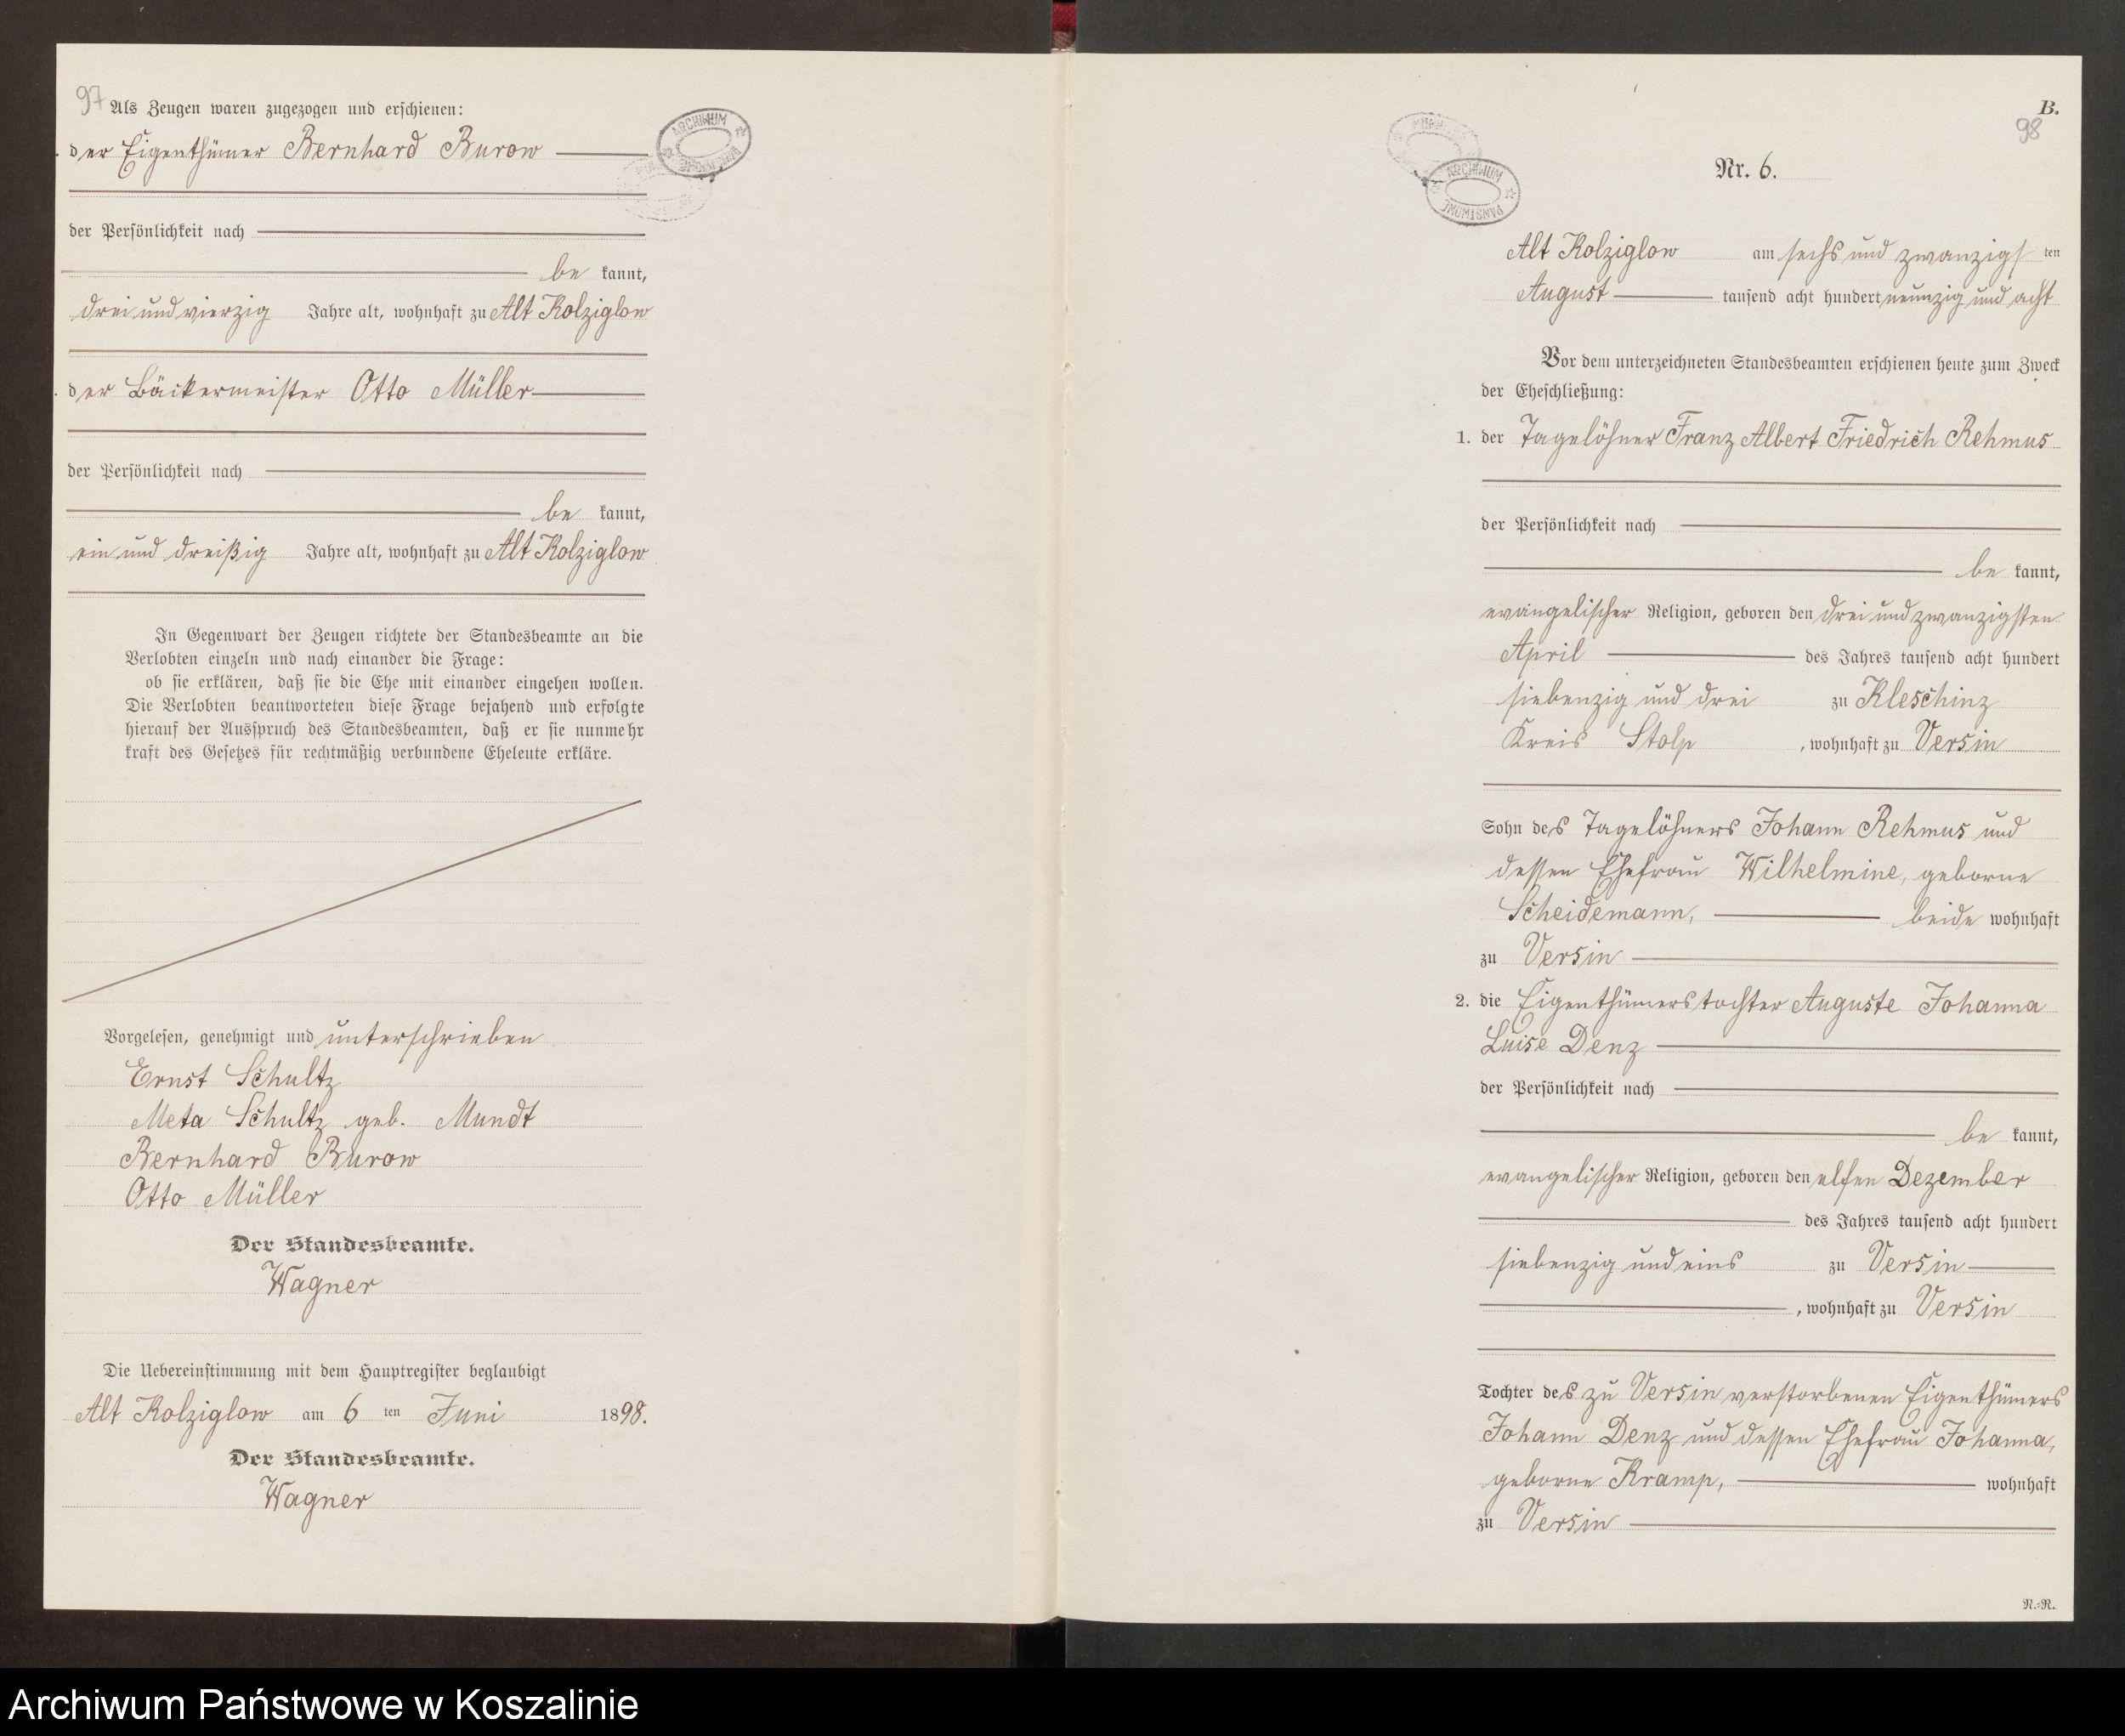 97
Als Zeugen waren zugezogen und erschienen:
der Eigenthümer Bernhard Burow
der Persönlichkeit nach
be kannt,
drei und vierzig Jahre alt, wohnhaft zu Alt Kolziglow
der Bäckermeister Otto Müller
der Persönlichkeit nach
be kannt,
ein und dreißig Jahre alt, wohnhaft zu Alt Kolziglow
In Gegenwart der Zeugen richtete der Standesbeamte an die
Verlobten einzeln und nach einander die Frage:
ob sie erklären, daß sie die Ehe mit einander eingehen wollen.
Die Verlobten beantworteten diese Frage bejahend und erfolgte
hierauf der Ausspruch des Standesbeamten, daß er sie nunmehr
kraft des Gesetzes für rechtmäßig verbundene Eheleute erkläre.
Vorgelesen, genehmigt und unterschrieben
Ernst Schultz
Meta Schultz geb. Mundt
Bernhard Burow
Otto Müller
Der Standesbeamte.
Wagner
Die Uebereinstimmung mit dem Hauptregister beglaubigt
Alt Kolziglow am 6 ten Juni 1898.
Der Standesbeamte.
Wagner
ARCHIWUM
B.
98
ARCHIWUM PAŃSTWOWE
Nr. 6.
Alt Kolziglow am sechs und zwanzigs ten
August tausend acht hundert neunzig und acht
Vor dem unterzeichneten Standesbeamten erschienen heute zum Zweck
der Eheschließung:
1. der Tagelöhner Franz Albert Friedrich Rehmus
der Persönlichkeit nach
be kannt,
evangelischer Religion, geboren den drei und zwanzigsten
April des Jahres tausend acht hundert
siebenzig und drei zu Kleschinz
Kreis Stolp, wohnhaft zu Versin
Sohn des Tagelöhners Johann Rehmus und
dessen Ehefrau Wilhelmine, geborne
Scheidemann, beide wohnhaft
zu Versin
2. die Eigenthümerstochter Auguste Johanna
Luise Denz
der Persönlichkeit nach
be kannt,
evangelischer Religion, geboren den elften Dezember
des Jahres tausend acht hundert
siebenzig und eins zu Versin
, wohnhaft zu Versin
Tochter des zu Versin verstorbenen Eigenthümers
Johann Denz und dessen Ehefrau Johanna,
geborne Kramp, wohnhaft
zu Versin
R.-R.
Archiwum Państwowe w Koszalinie